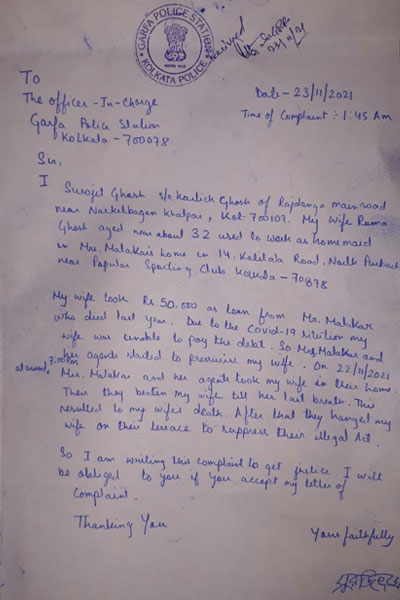 GARFA POLICE STATION
KOLKATA POLICE
Received
23/11/21
To
The Officer-In-Charge
Garfa Police Station
Kolkata - 700078
Date - 23/11/2021
Time of Complaint :- 1:45 Am
Sir,
I Surojit Ghosh s/o Kartick Ghosh of Rajdanga main road
near Narkelbagan Khalpar, Kol-700107. My Wife Rama
Ghosh aged near about 32 used to work as homemaid
in Mrs. Malakar's home in 14, Kalitala Road, North Purbachal
near Popular Sporting Club Kolkata - 70078
My wife took Rs. 50.000 as loan from Mr. Malakar
who died last year. Due to the Covid-19 my
wife was unable to pay the debt. So Mrs. Malakar and
her agents started to pressurise my wife. On 22/11/2021
at around 7:00 Pm
Mrs. Malakar and her agents took my wife in their home.
Their they beaten my wife till her last breath. This
resulted to my wife's death. After that they hanged my
wife on their terrace to suppress their illegal Act.
So I am writing this complaint to get justice. I will
be obliged to you if you accept my letter of
Complaint.
Thanking You
Yours faithfully